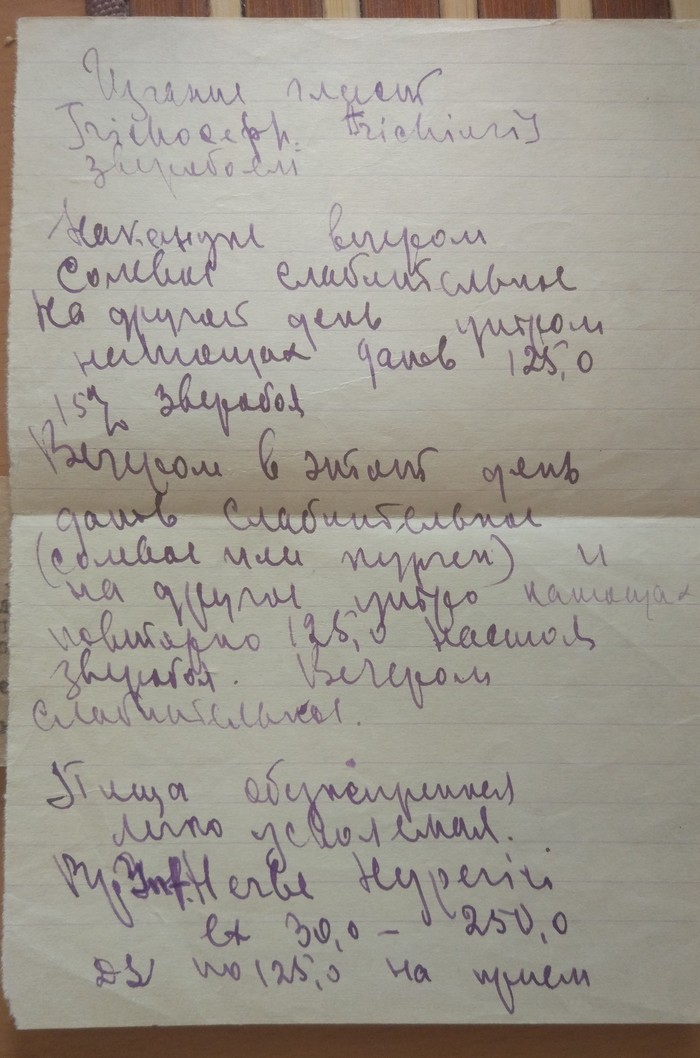 Изгание глист
Trichoceph. trichiuris
зверобоем
Накануне вечером
солевое слабительное
На другой день утром
натощак даков 125,0
15% зверобоя
Вечером в этот день
слабительное
(солевое или пурген) и
на другое утро натощак
повторно 125,0 настоя
зверобоя. Вечером
слабительное.
Пища обезжиренная
легко усвояемая.
Rp. Inf. Herbe Hyperici
ex 30,0 - 250,0
DS по 125,0 на прием